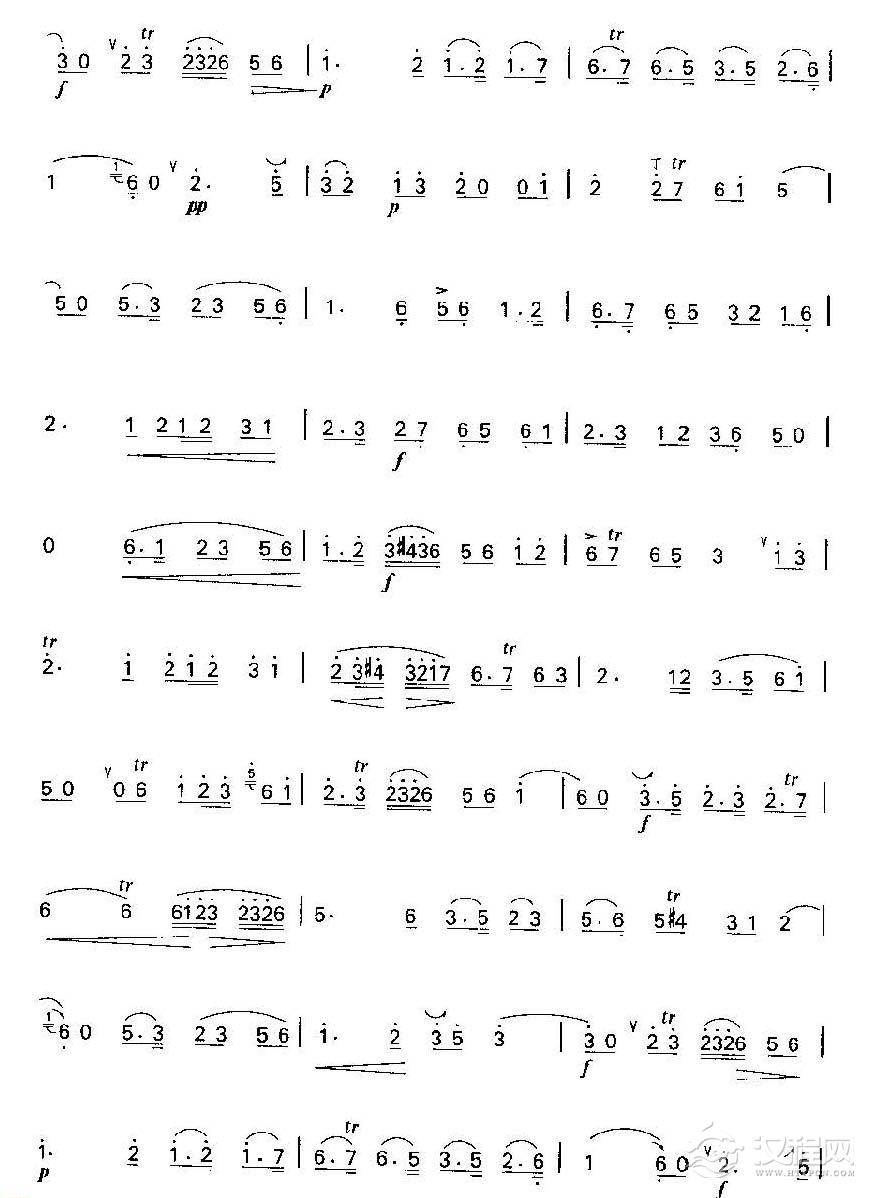 3 0 v 2 3 tr 2326 5 6 | 1. 2 1.2 1.7 | 6.7 tr 6.5 3.5 2.6 |
f p
1 1 6 0 v 2. 5 | 3 2 1 3 2 0 0 1 | 2 2 7 tr 6 1 5 |
pp p
5 0 5.3 2 3 5 6 | 1. 6 > 5 6 1.2 | 6.7 6 5 3 2 1 6 |
2. 1 2 1 2 3 1 | 2.3 2 7 6 5 6 1 | 2.3 1 2 3 6 5 0 |
f
0 6.1 2 3 5 6 | 1.2 3#436 5 6 1 2 | > tr 6 7 6 5 3 v 1 3 |
f
tr 2. 1 2 1 2 3 1 | 2 3#4 3217 6.7 tr 6 3 | 2. 12 3.5 6 1 |
5 0 v 0 6 tr 1 2 3 5 6 1 | 2.3 tr 2326 5 6 1 | 6 0 3.5 2.3 2.7 tr |
f
6 6 tr 6123 2326 | 5. 6 3.5 2 3 | 5.6 5#4 tr 3 1 2 |
1 6 0 5.3 2 3 5 6 | 1. 2 3 5 3 | 3 0 v 2 3 tr 2326 5 6 |
f
1. 2 1.2 1.7 | 6.7 tr 6.5 3.5 2.6 | 1 6 0 v 2. 5 |
p f
汉程网